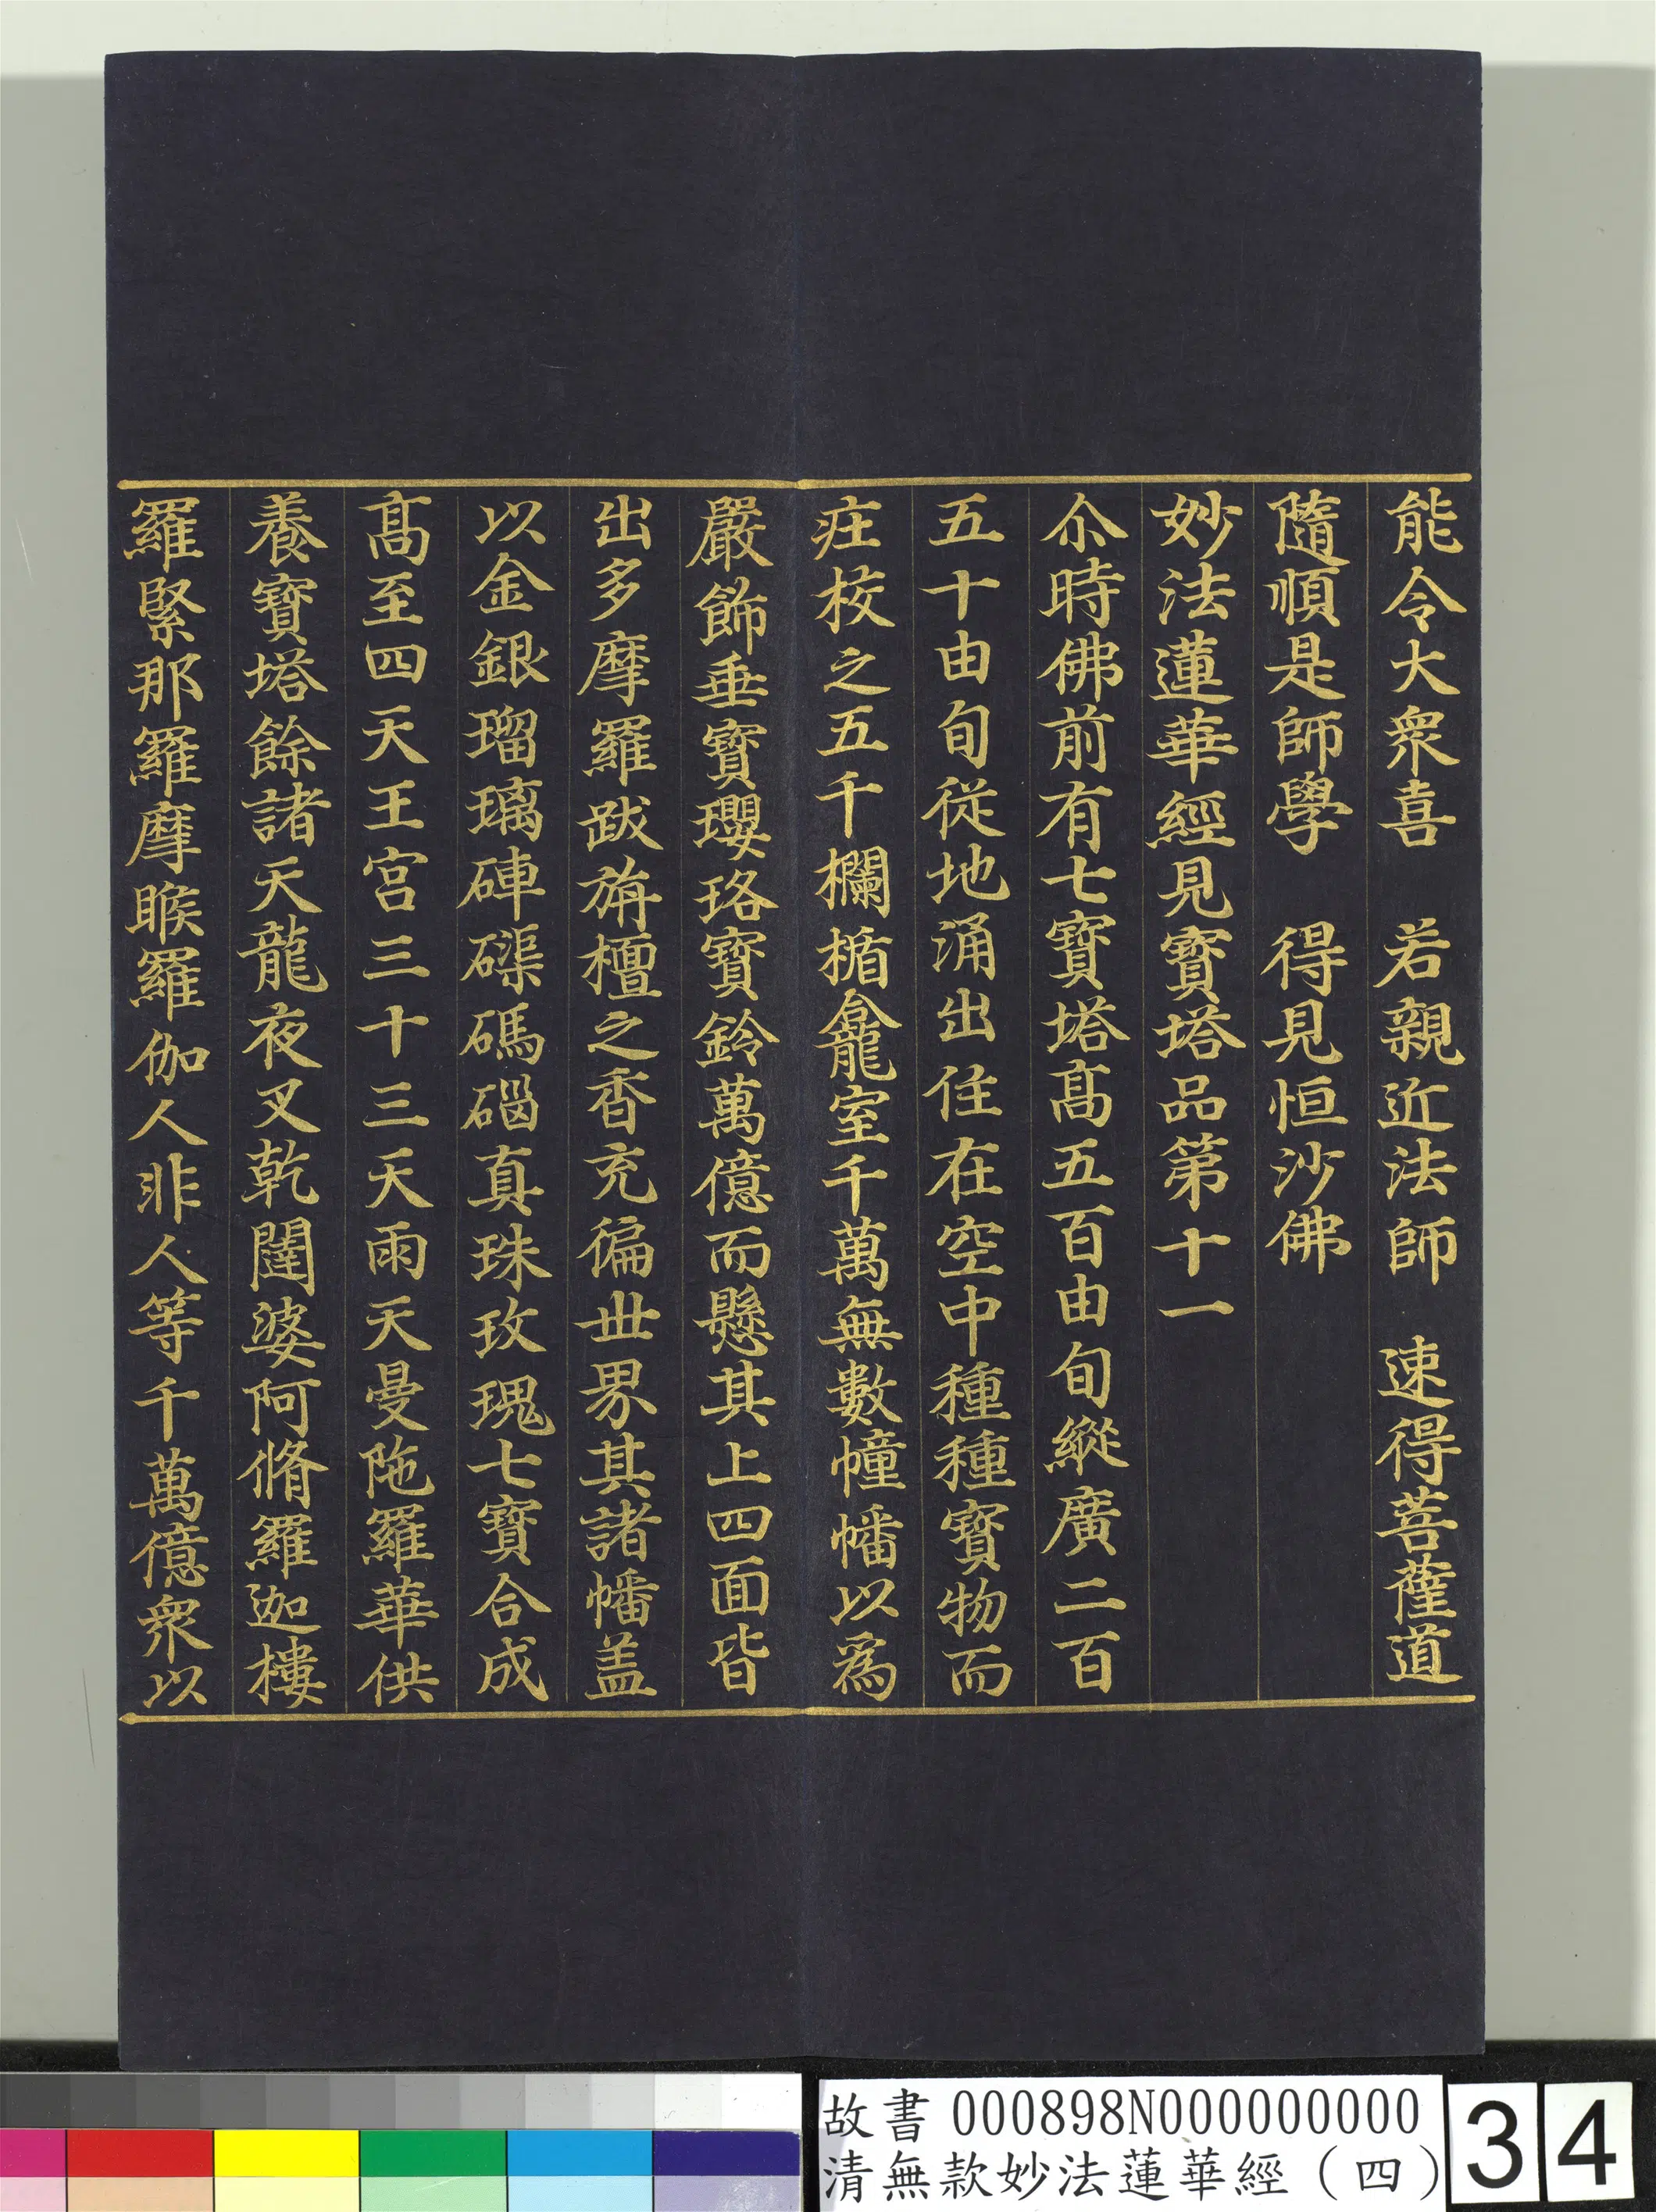 能令大衆喜　若親近法師　速得菩薩道
隨順是師學　得見恒沙佛
妙法蓮華經見寶塔品第十一
尒時佛前有七寶塔髙五百由旬縱廣二百
五十由旬從地涌出住在空中種種寶物而
疘校之五千欄楯龕室千萬無數幢幡以爲
嚴飾垂寶瓔珞寶鈴萬億而懸其上四面皆
出多摩羅跋旃檀之香充徧丗界其諸幡盖
以金銀瑠璃硨磲碼碯真珠玫瑰七寶合成
髙至四天王宫三十三天天雨天曼陁羅華供
養寶塔餘諸天龍夜叉乾闥婆阿脩羅迦樓
羅緊那羅摩睺羅伽人非人等千萬億衆以
故書 000898N000000000
清無款妙法蓮華經（四）
34